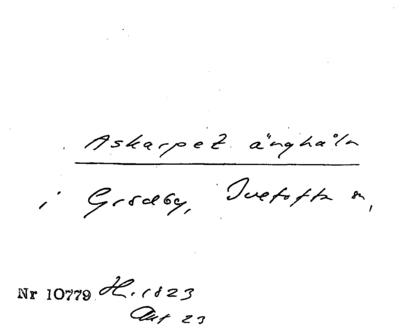 Askarpet änghåla
i Grödby, Ivetofta sn,
Nr 10779 H. 1823
Akt 23